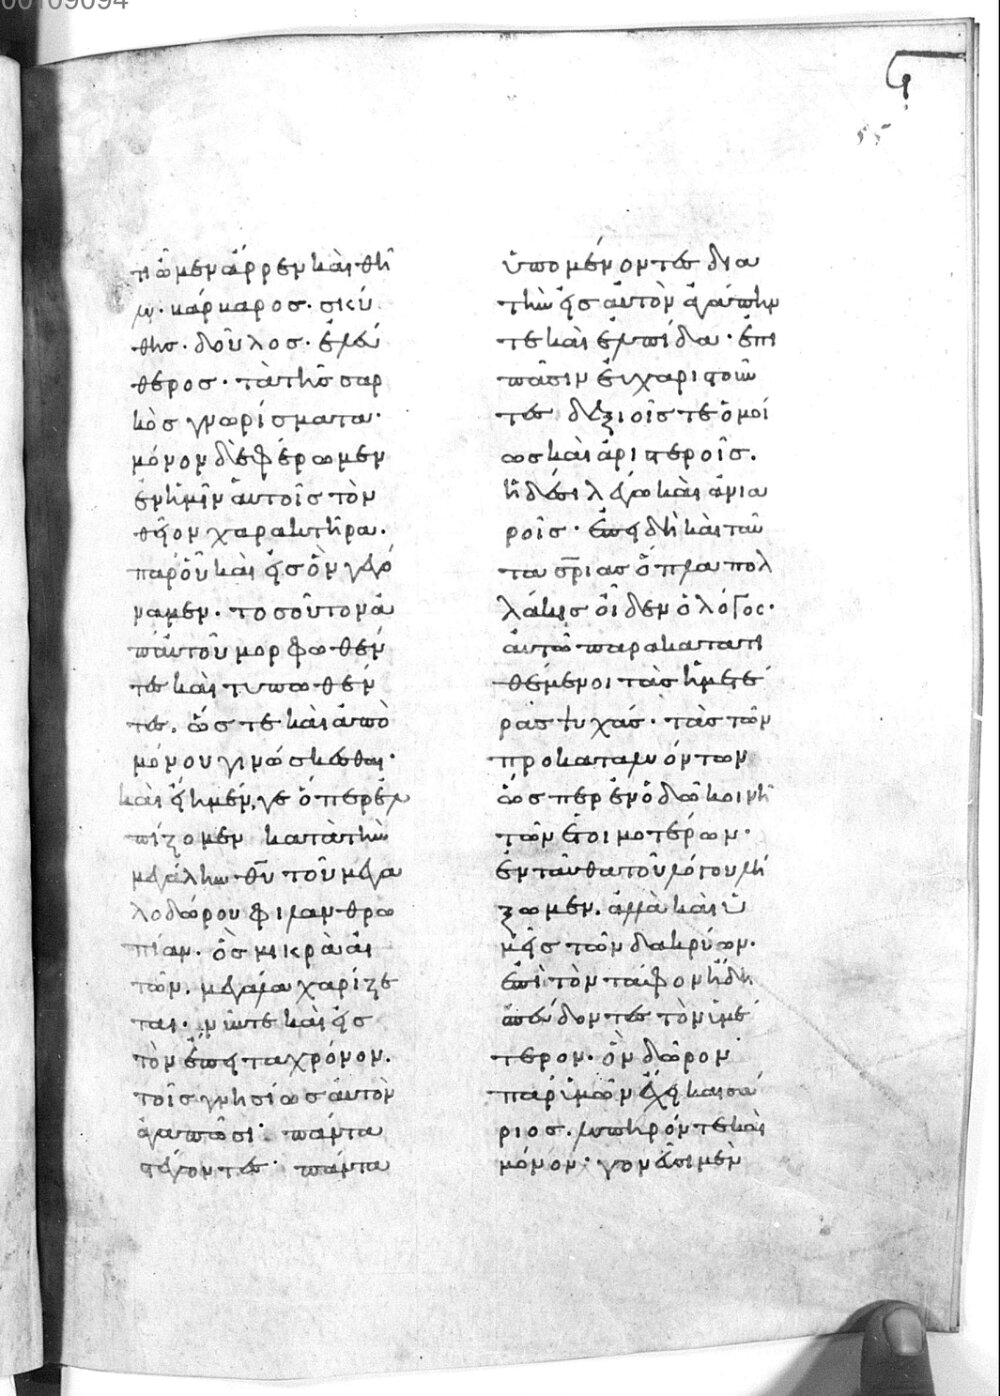 00109094
55
τι ὦμεν ἄρρεν καὶ θῆ
λυ· βάρβαρος· σκύ
θης· δοῦλος· ἐλεύ
θερος· τὰ τῆς σαρ
κὸς γνωρίσματα·
μόνον δὲ φέρωμεν
ἐν ἡμῖν αὐτοῖς τὸν
θεῖον χαρακτῆρα·
παρ οὗ καὶ εἰς ὃν γεγό
ναμεν· τοσοῦτον ἀ
π αὐτοῦ μορφωθέν
τες καὶ τυπωθέν
τες, ὥστε καὶ ἀπὸ
μόνου γινώσκεσθαι·
καὶ εἴημέν, γε ὅπερ ἐλ
πίζομεν κατὰ τὴν
μεγάλην θῦ τοῦ μεγα
λοδώρου φιλανθρω
πίαν· ὃς μικρὰ αἰ
τῶν, μεγάλα χαρίζε
ται· νῦν τε καὶ εἰς
τὸν ἔπειτα χρόνον·
τοῖς γνησίως αὐτὸν
ἀγαπῶσι· πάντα
στέγοντες· πάντα
ὑπομένοντες δια
τὴν εἰς αὐτὸν ἀγάπην
τε καὶ ἐλπίδα· ἐπι
πᾶσιν εὐχαριστοῦν
τες δεξιοῖς τε ὁμοί
ως καὶ ἀριστεροῖς.
ἡδέσι λέγω καὶ ἀνια
ροῖς· ἐπειδὴ καὶ ταῦ
τα σ̅ρ̅ιας ὅπλα πολ
λάκις οἶδεν ὁ λόγος·
αὐτῶ παρακατατι
θέμενοι τὰς ἡμετέ
ρας ψυχάς· τὰς τῶν
προκαταλυόντων
ὥσπερ ἐν ὁδῶ κοινῆ
τῶν ἑτοιμοτέρων·
ἐνταῦθα τοῦ λόγου λή
ξωμεν· ἀλλὰ καὶ ὑ
μεῖς τῶν δακρύων·
ἐπὶ τὸν τάφον ἤδη
σπεύδοντες τὸν ὑμέ
τερον· ὃν δῶρον
παρ ὑμῶν ἔχει καισά
ριος· λυπηρόν τε καὶ
μόνον· γονεῦσι μὲν